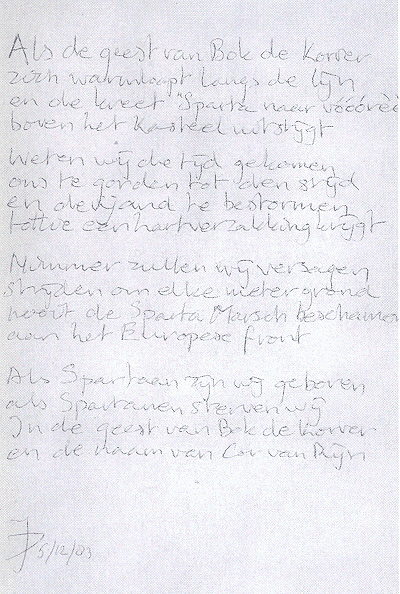 Als de geest van Bok de Korver
zich warmloopt langs de lijn
en de kreet "Sparta naar vóóórè
boven het Kasteel uitstijgt
Weten wij de tijd gekomen
ons te gorden tot den strijd
en de vijand te bestormen
tottie een hartverzakking krijgt
Nimmer zullen wij versagen
strijden om elke meter grond
nooit de Sparta Marsch beschamen
aan het Europese front
Als Spartaan zijn wij geboren
als Spartanen sterven wij
In de geest van Bok de Korver
en de naam van Cor van Rijn
5/12/03